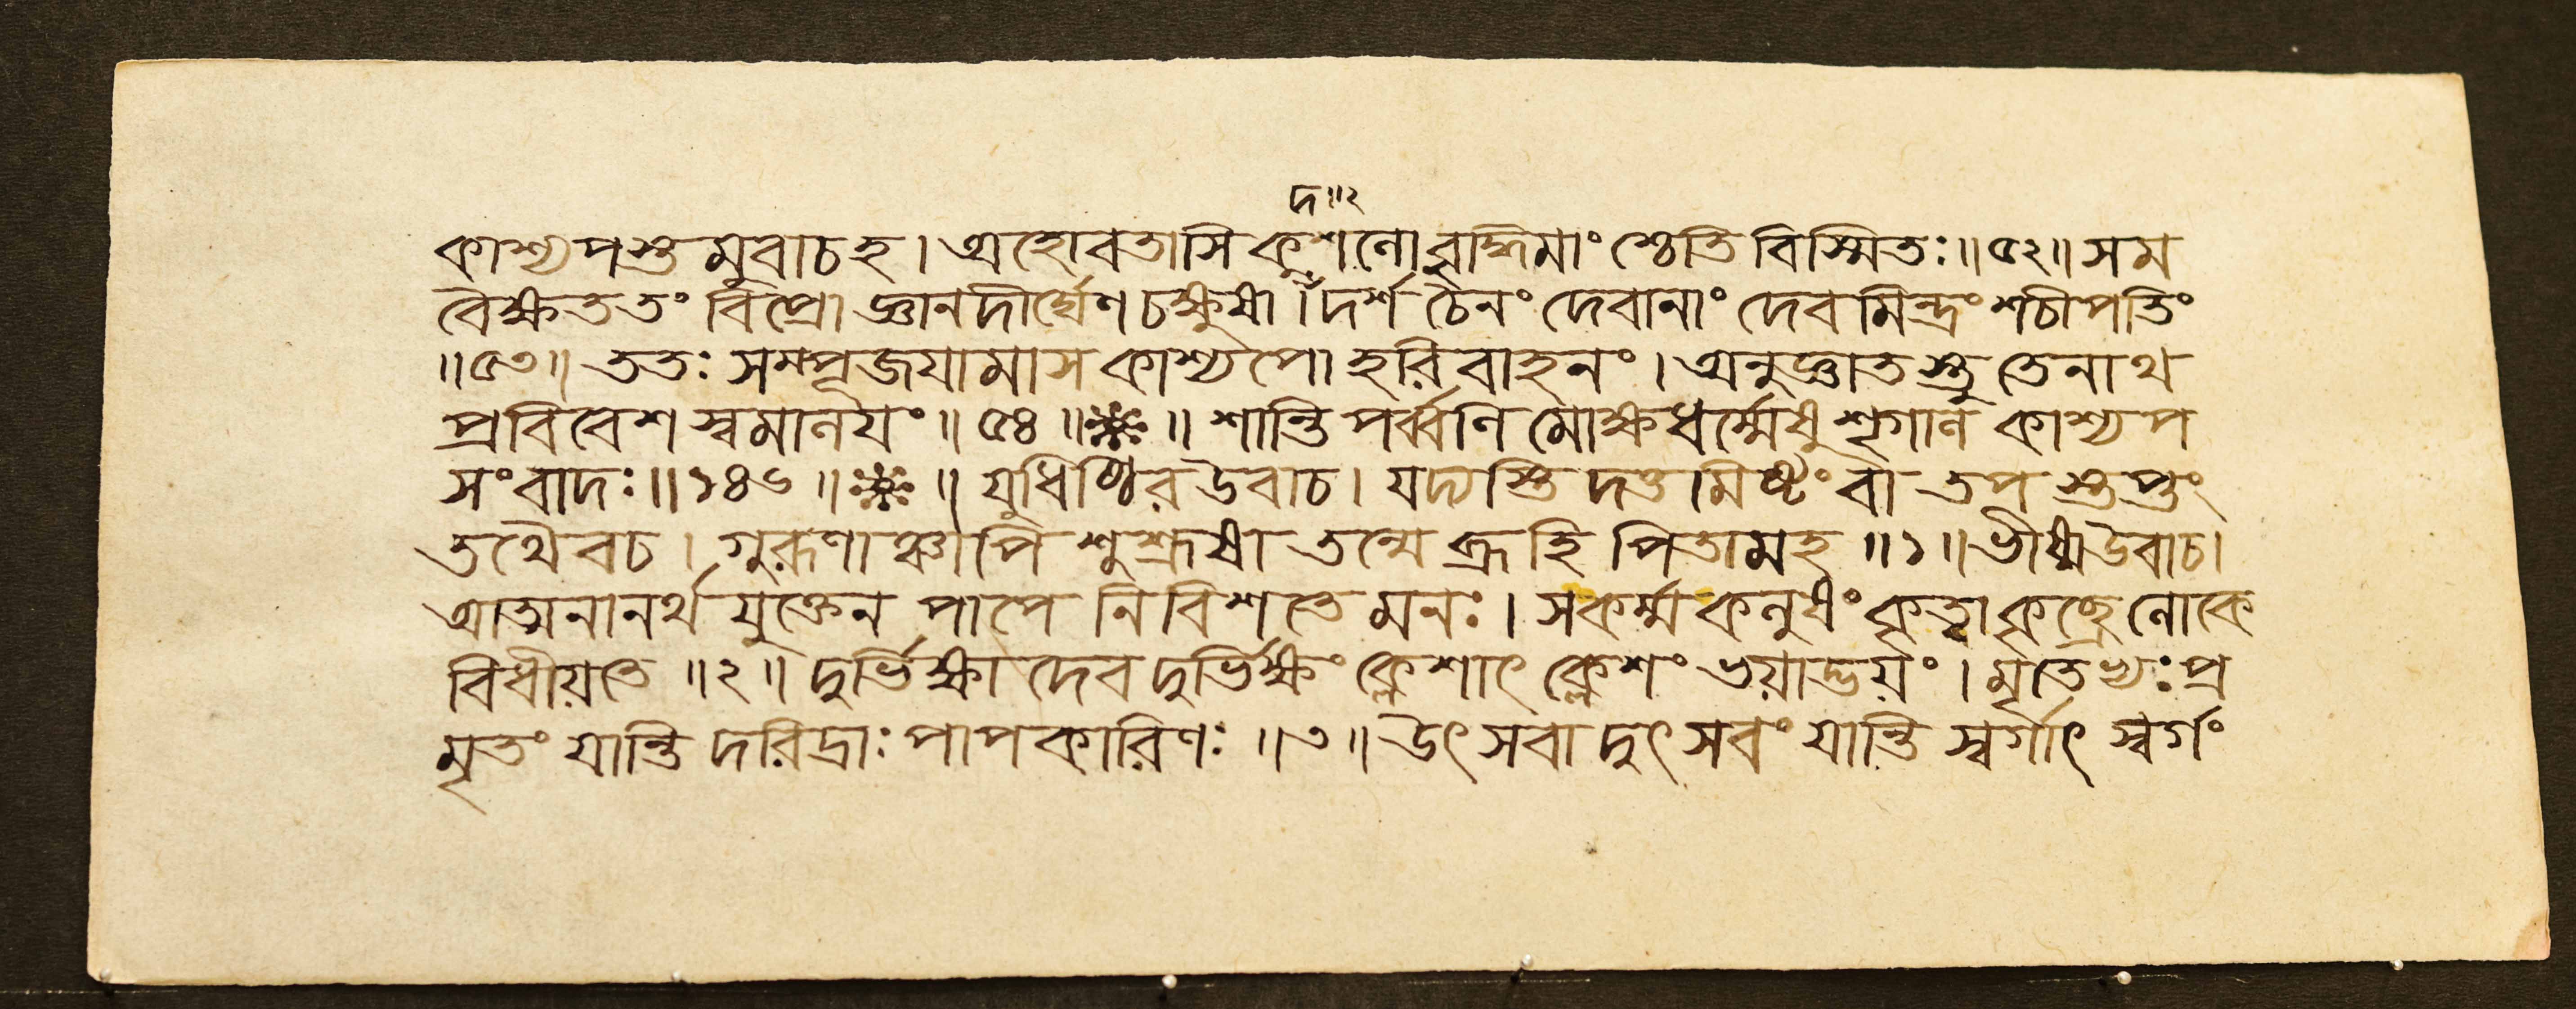 দ॥২
কাশ্যপস্তমুবাচহ। অহোবতাসি কুশলো বুদ্ধিমাংশ্চেতি বিস্মিতঃ॥৫২॥ সম
বৈক্ষততং বিপ্রো জ্ঞানদীর্ঘেণ চক্ষুষা। দর্শ চৈনং দেবানাং দেবমিন্দ্রং শচীপতিং
॥৫৩॥ ততঃ সম্পূজয়ামাস কাশ্যপো হরিবাহনং। অনুজ্ঞাতস্তু তেনাথ
প্রবিবেশ স্বমালয়ং॥ ৫৪ ॥ ॥ শান্তিপর্ব্বণি মোক্ষধর্ম্মেষু শৃগাল কাশ্যপ
সংবাদঃ॥১৪৬॥ ॥ যুধিষ্ঠির উবাচ। যদ্যস্তি দত্তমিষ্টং বা তপস্তপ্তং
তথৈবচ। গুরূণাঞ্চাপি শুশ্রূষা তন্মে ব্রূহি পিতামহ॥১॥ ভীষ্ম উবাচ।
আত্মনানর্থযুক্তেন পাপে নিবিশতে মনঃ। সকর্ম্ম কলুষং কৃত্বা কৃচ্ছ্রে লোকে
বিধীয়তে॥২॥ দুর্ভিক্ষাদেব দুর্ভিক্ষং ক্লেশাৎ ক্লেশং ভয়াদ্ভয়ং। মৃতেভ্যঃ প্র
মৃতং যান্তি দরিদ্রাঃ পাপকারিণঃ॥৩॥ উৎসবাদুৎসবং যান্তি স্বর্গাৎ স্বর্গং